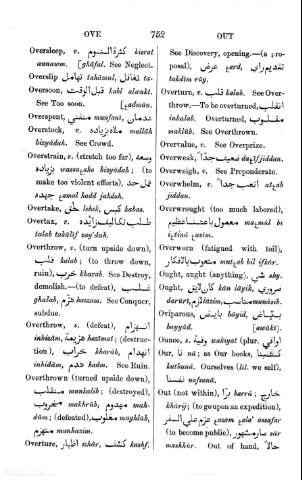 OVE 752 OUT
Oversleep, v. كثرة النوم kisrat
aunawm. [gháfal. See Neglect.
Overslip تغافل تهامل tahámal, ta-
Oversoon, قبل الوقت kabl alwakt.
See Too soon. [عدمان
Overspent, منفني munfaní,
Overstock, v. ملاه بزياده malláh
bizyádah. See Crowd.
Overstrain, v. (stretch too far), وسعه
بزياده bizyádah; (to
make too violent efforts), عمل جهد
jamal hadd jahdah.
Overtake, v. لحق lahak, كبس kabas.
Overtax, v. طلب تكليف زايده
talab taklíf
Overthrow, v. (turn upside down),
قلب kalab; (to throw down,
ruin), خرب kharab. See Destroy,
demolish.—(to defeat), غلب
ghalab, هزم hazam. See Conquer,
subdue.
Overthrow, s. (defeat), انهزام
inhizám, هزيمة hazímat; (destruc-
tion), خراب kharáb, انهدام
inhidám, هدم hadm. See Ruin.
Overthrown (turned upside down),
منقلب munkalib; (destroyed),
مخروب makhrúb, مهدوم mah-
dúm; (defeated), مغلوب maghlúb,
منهزم munhazim.
Overture, اظهار izhár, كشف kashf.
See Discovery, opening.—(a pro-
posal), عرض ard, تقديم راي
takdím ráy.
Overturn, v. قلب kalab. See Over-
throw.—To be overturned, انقلب
inkalab. Overturned, مقلوب
maklúb. See Overthrown.
Overvalue, v. See Overprize.
Overweak, ضعيف جدا
Overweigh, v. See Preponderate.
Overwhelm, v. اتعب جدا
jiddan.
Overwrought (too much labored),
معمول باعتنا عظيم mamúl bi
Overworn (fatigued with toil),
متعوب بالافكار bil ifkár.
Ought, aught (anything), شي shy.
Ought, v. كان لايق kán láyik, ضروري
darúrí, لازم lázim, مناسب munásib.
Oviparous, بياض، يبيض
bayyád. [awáki]
Ounce, s. وقية wakiyat (plur. اواقي
Our, نا ná; as Our books, كتبنا
kutbuná. Ourselves (lit. we self),
نفسنا nafsuná.
Out (not within), برا barrá, خارج
khárij; (to go upon an expedition),
عزم علي السفر azam ala' assafar
(to become public), صار مشهور sár
mashhúr. Out of hand, حالاً